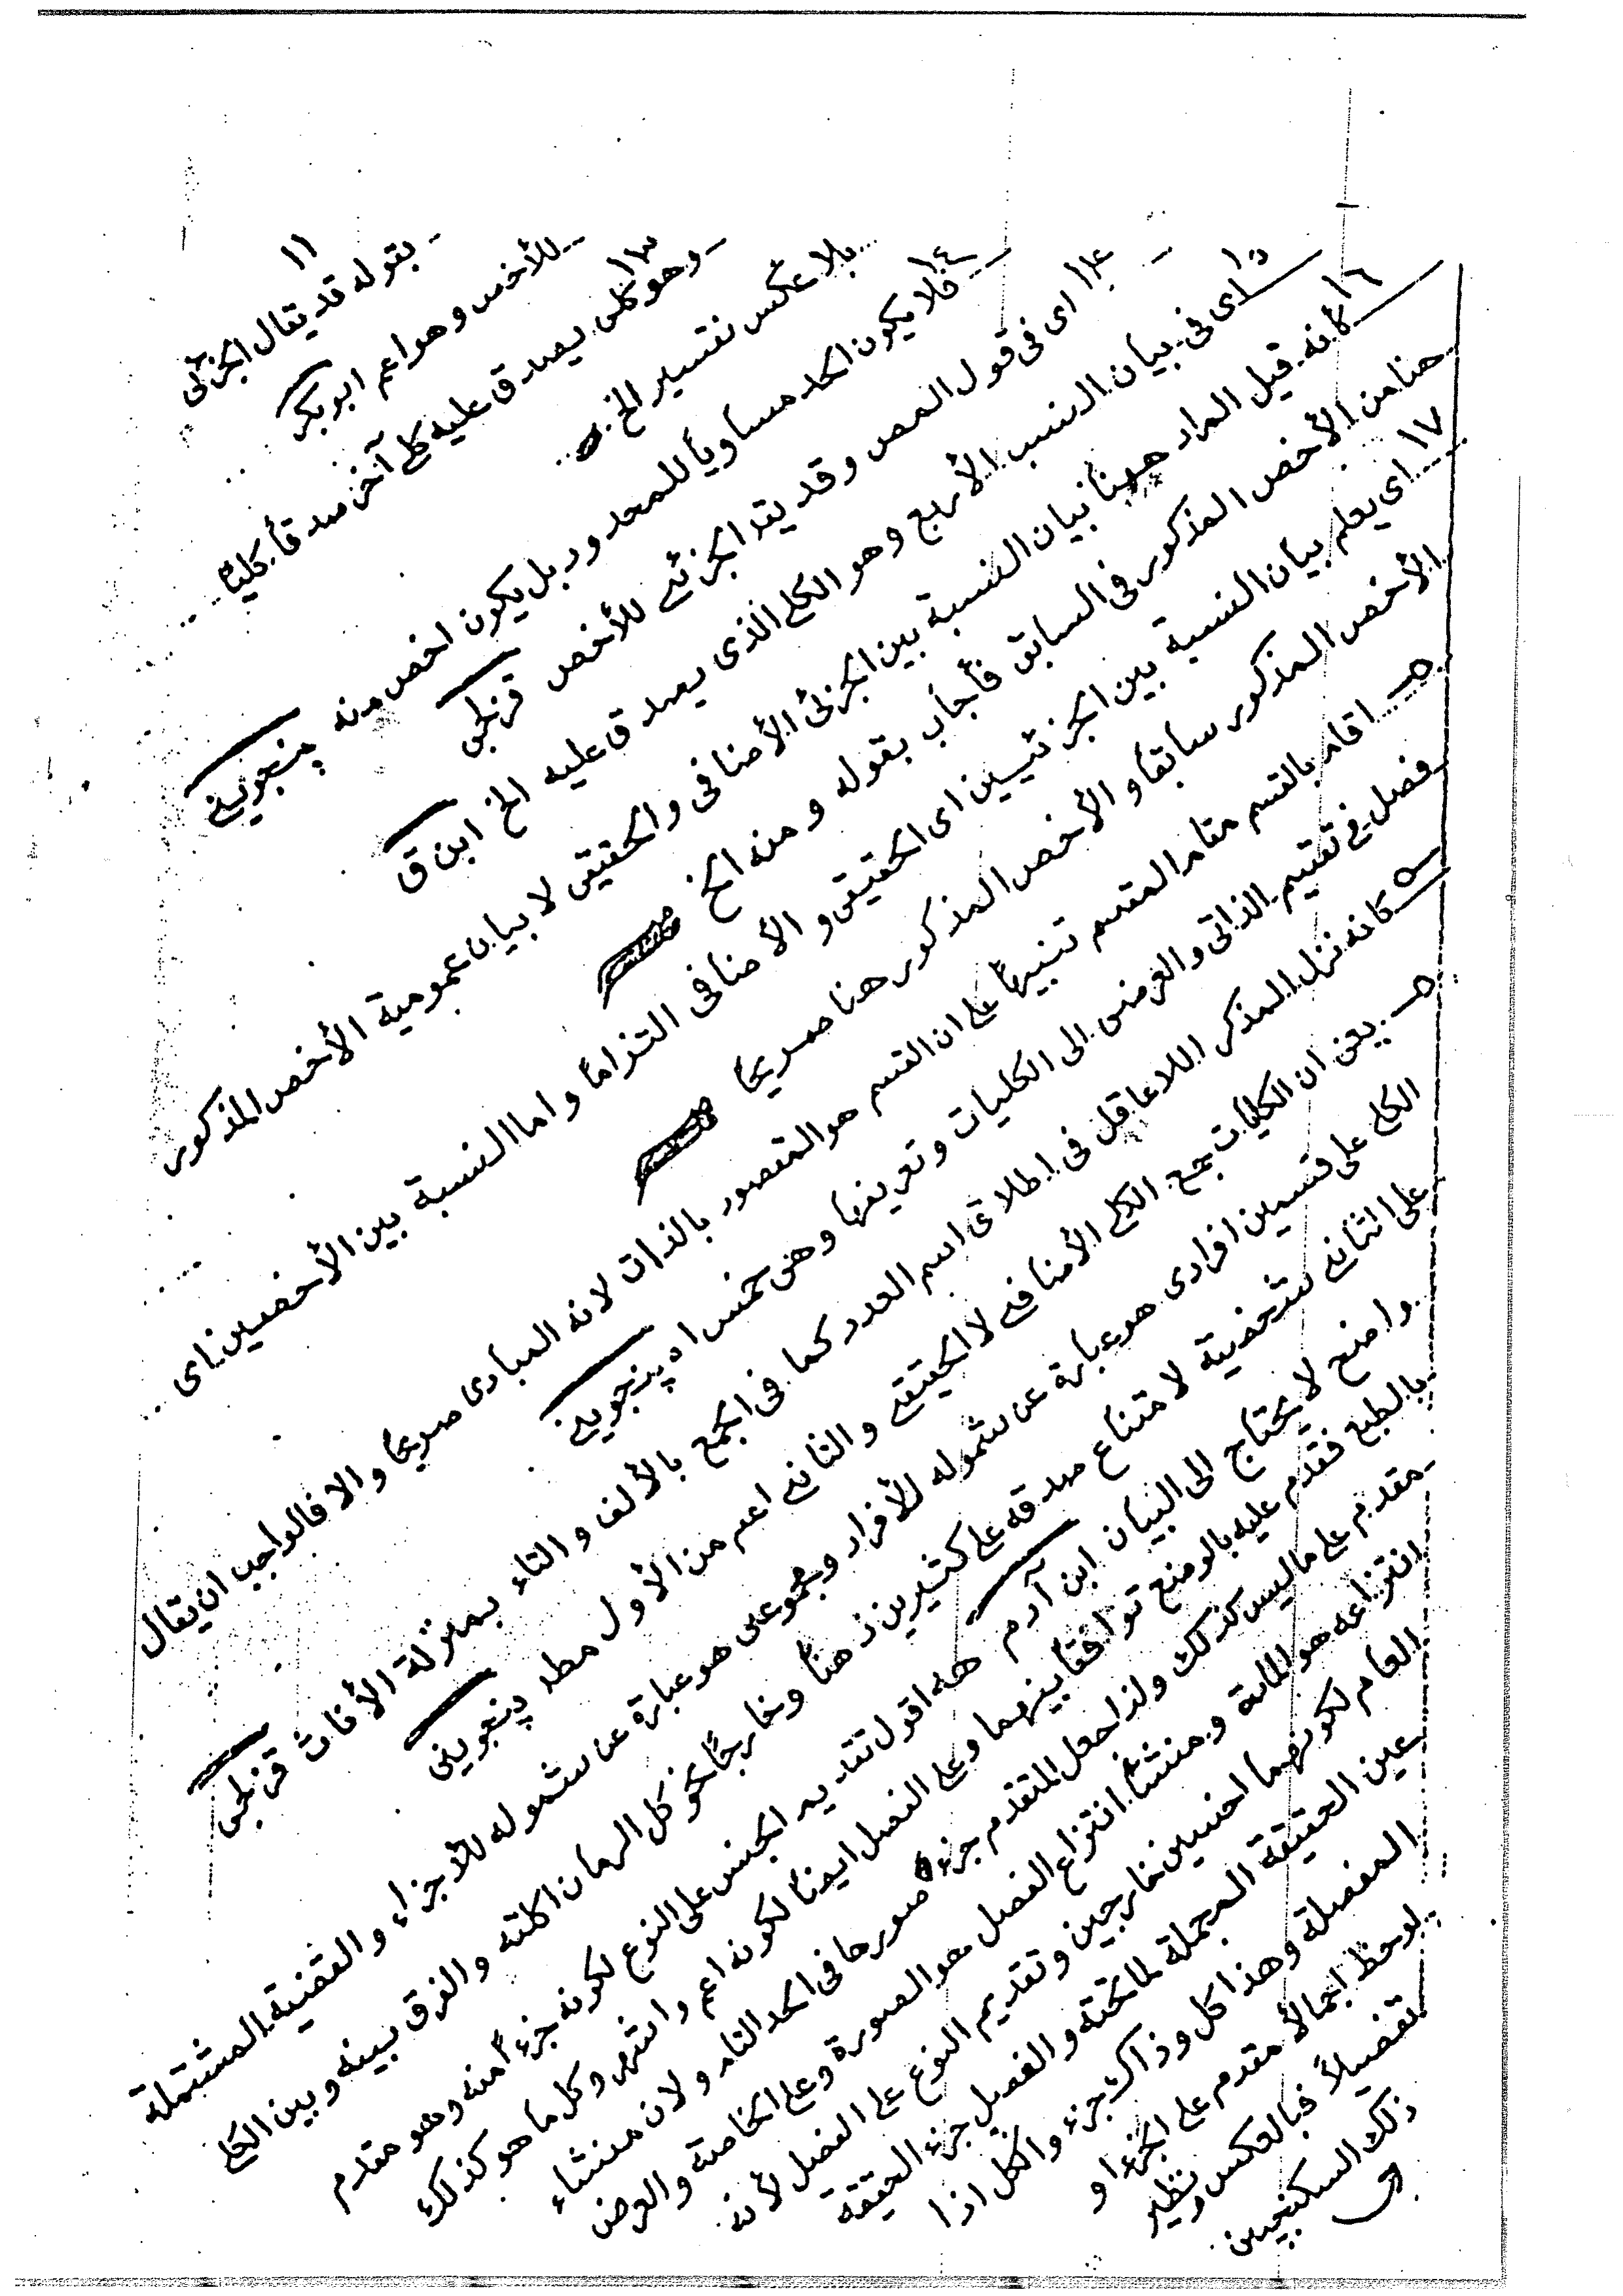 ١١
بقوله قد يقال الجزئى
للأخص وهو اعم ابو بكر
١٣ وهو كلى يصدق عليه كلى آخر صدقاً كلياً
بلا عكس تفسير الخ
١٤ فلا يكون الحد مساوياً للمحدود بل يكون اخص منه پنجوينى
١٤ اى فى قول المص وقد يقد الجزئى للأخص قزلجى
١٥ اى فى بيان النسب الأربع وهو الكلى الذى يصدق عليه الخ ابن ق
١٦ كأنه قيل المراد ههنا بيان النسبة بين الجزئى الأضافى والحقيقى لا بيان عمومية الأخص المذكور
هنا من الأخص المذكور فى السابق فأجاب بقوله ومنه الخ
١٧ اى يعلم بيان النسبة بين الجزئيين اى الحقيقى والأضافى التزاماً واما النسبة بين الأخصين اى
الأخص المذكور سابقاً والأخص المذكور هنا صريحاً
اقام بالقسم مقام المقسم تنبيهاً على ان القسم هو المقصود بالذات لانه المبادى صريحاً والا فالواجب ان يقال
فصل فى تقسيم الذاتى والعرضى الى الكليات وتعريفها وهى خمس اه پنجوينى
كانه نزل المذكر اللاعاقل فى اطلاق اسم العدد كما فى الجمع بالألف والتاء بمنزلة الأناث قزلجى
يعنى ان الكليات جمع الكلى الأضافى لا الحقيقى والثانى اعم من الأول مطد پنجوينى
الكلى على قسمين افرادى هو عبارة عن شموله للأفراد ومجموعى هو عبارة عن شموله للاجزاء والقضية المشتملة
على الثانى شخصية لامتناع صدقه على كثيرين ذهناً وخارجاً نحو كل الرمان اكلته والفرق بينه وبين الكلى
واضع لا يحتاج الى البيان ابن آدم هه اقول تقديم الجنس على النوع لكونه جزءاً منه وهو مقدم
بالطبع فقدم عليه بالوضع توافقاً بينهما وعلى الفصل ايضاً لكونه اعم واشهر وكل ما هو كذلك
مقدم على ما ليس كذلك ولذا جعل المتقدم جزء صورها فى الحد التام ولان منشاء
انتزاعه هو المادة ومنشأ انتزاع الفصل هو الصورة وعلى الخاصة والعرض
العام لكونهما اجنبيين خارجين وتقديم النوع على الفصل لأنه
عين الحقيقة المجملة لما تحته والفصل جزء الحقيقة
المفصلة وهذا كل وذاك جزء والكل اذا
لوحظ اجمالاً مقدم على الجزء او
تفصيلاً فبالعكس ونظير
ذلك السكنجبين
ق